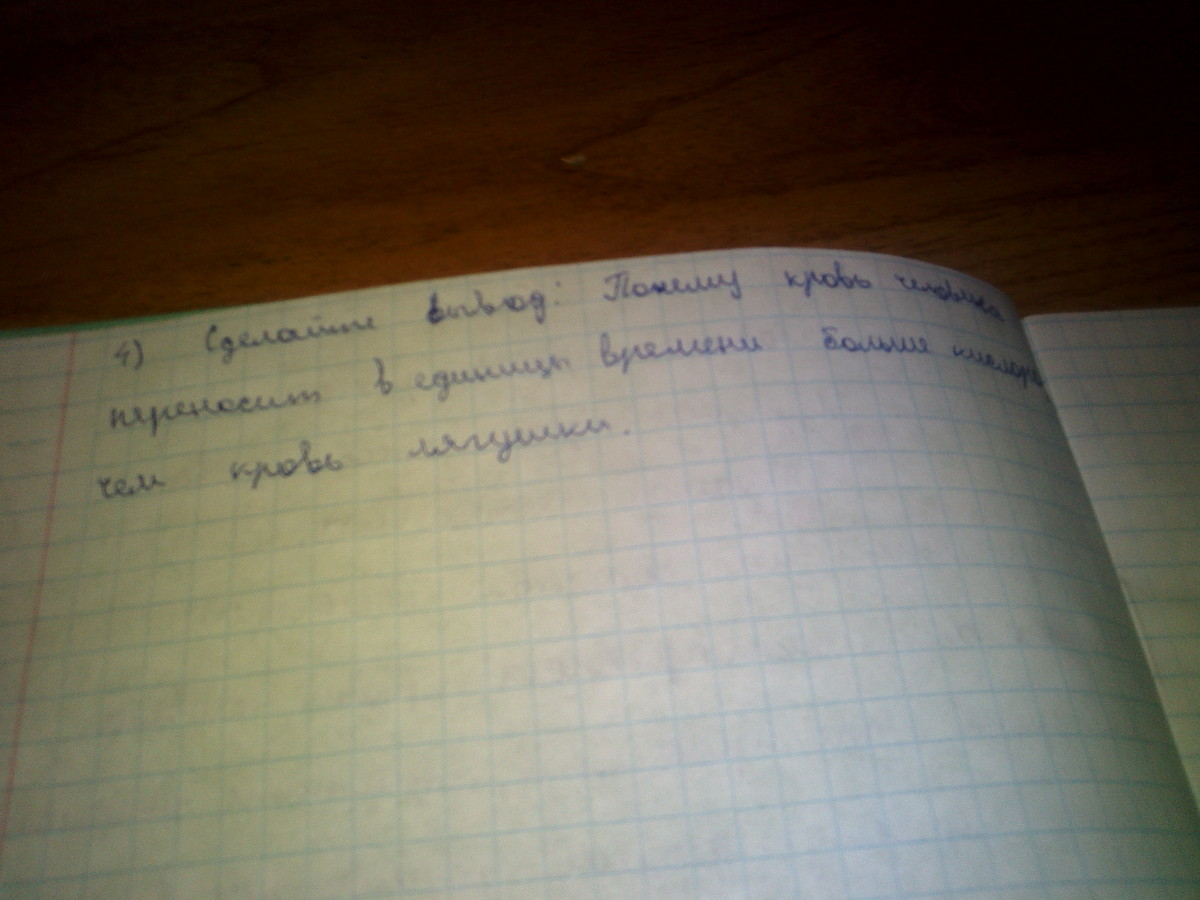 4) Сделайте вывод: Почему кровь человека
переносит в единицы времени больше кислорода
чем кровь лягушки.